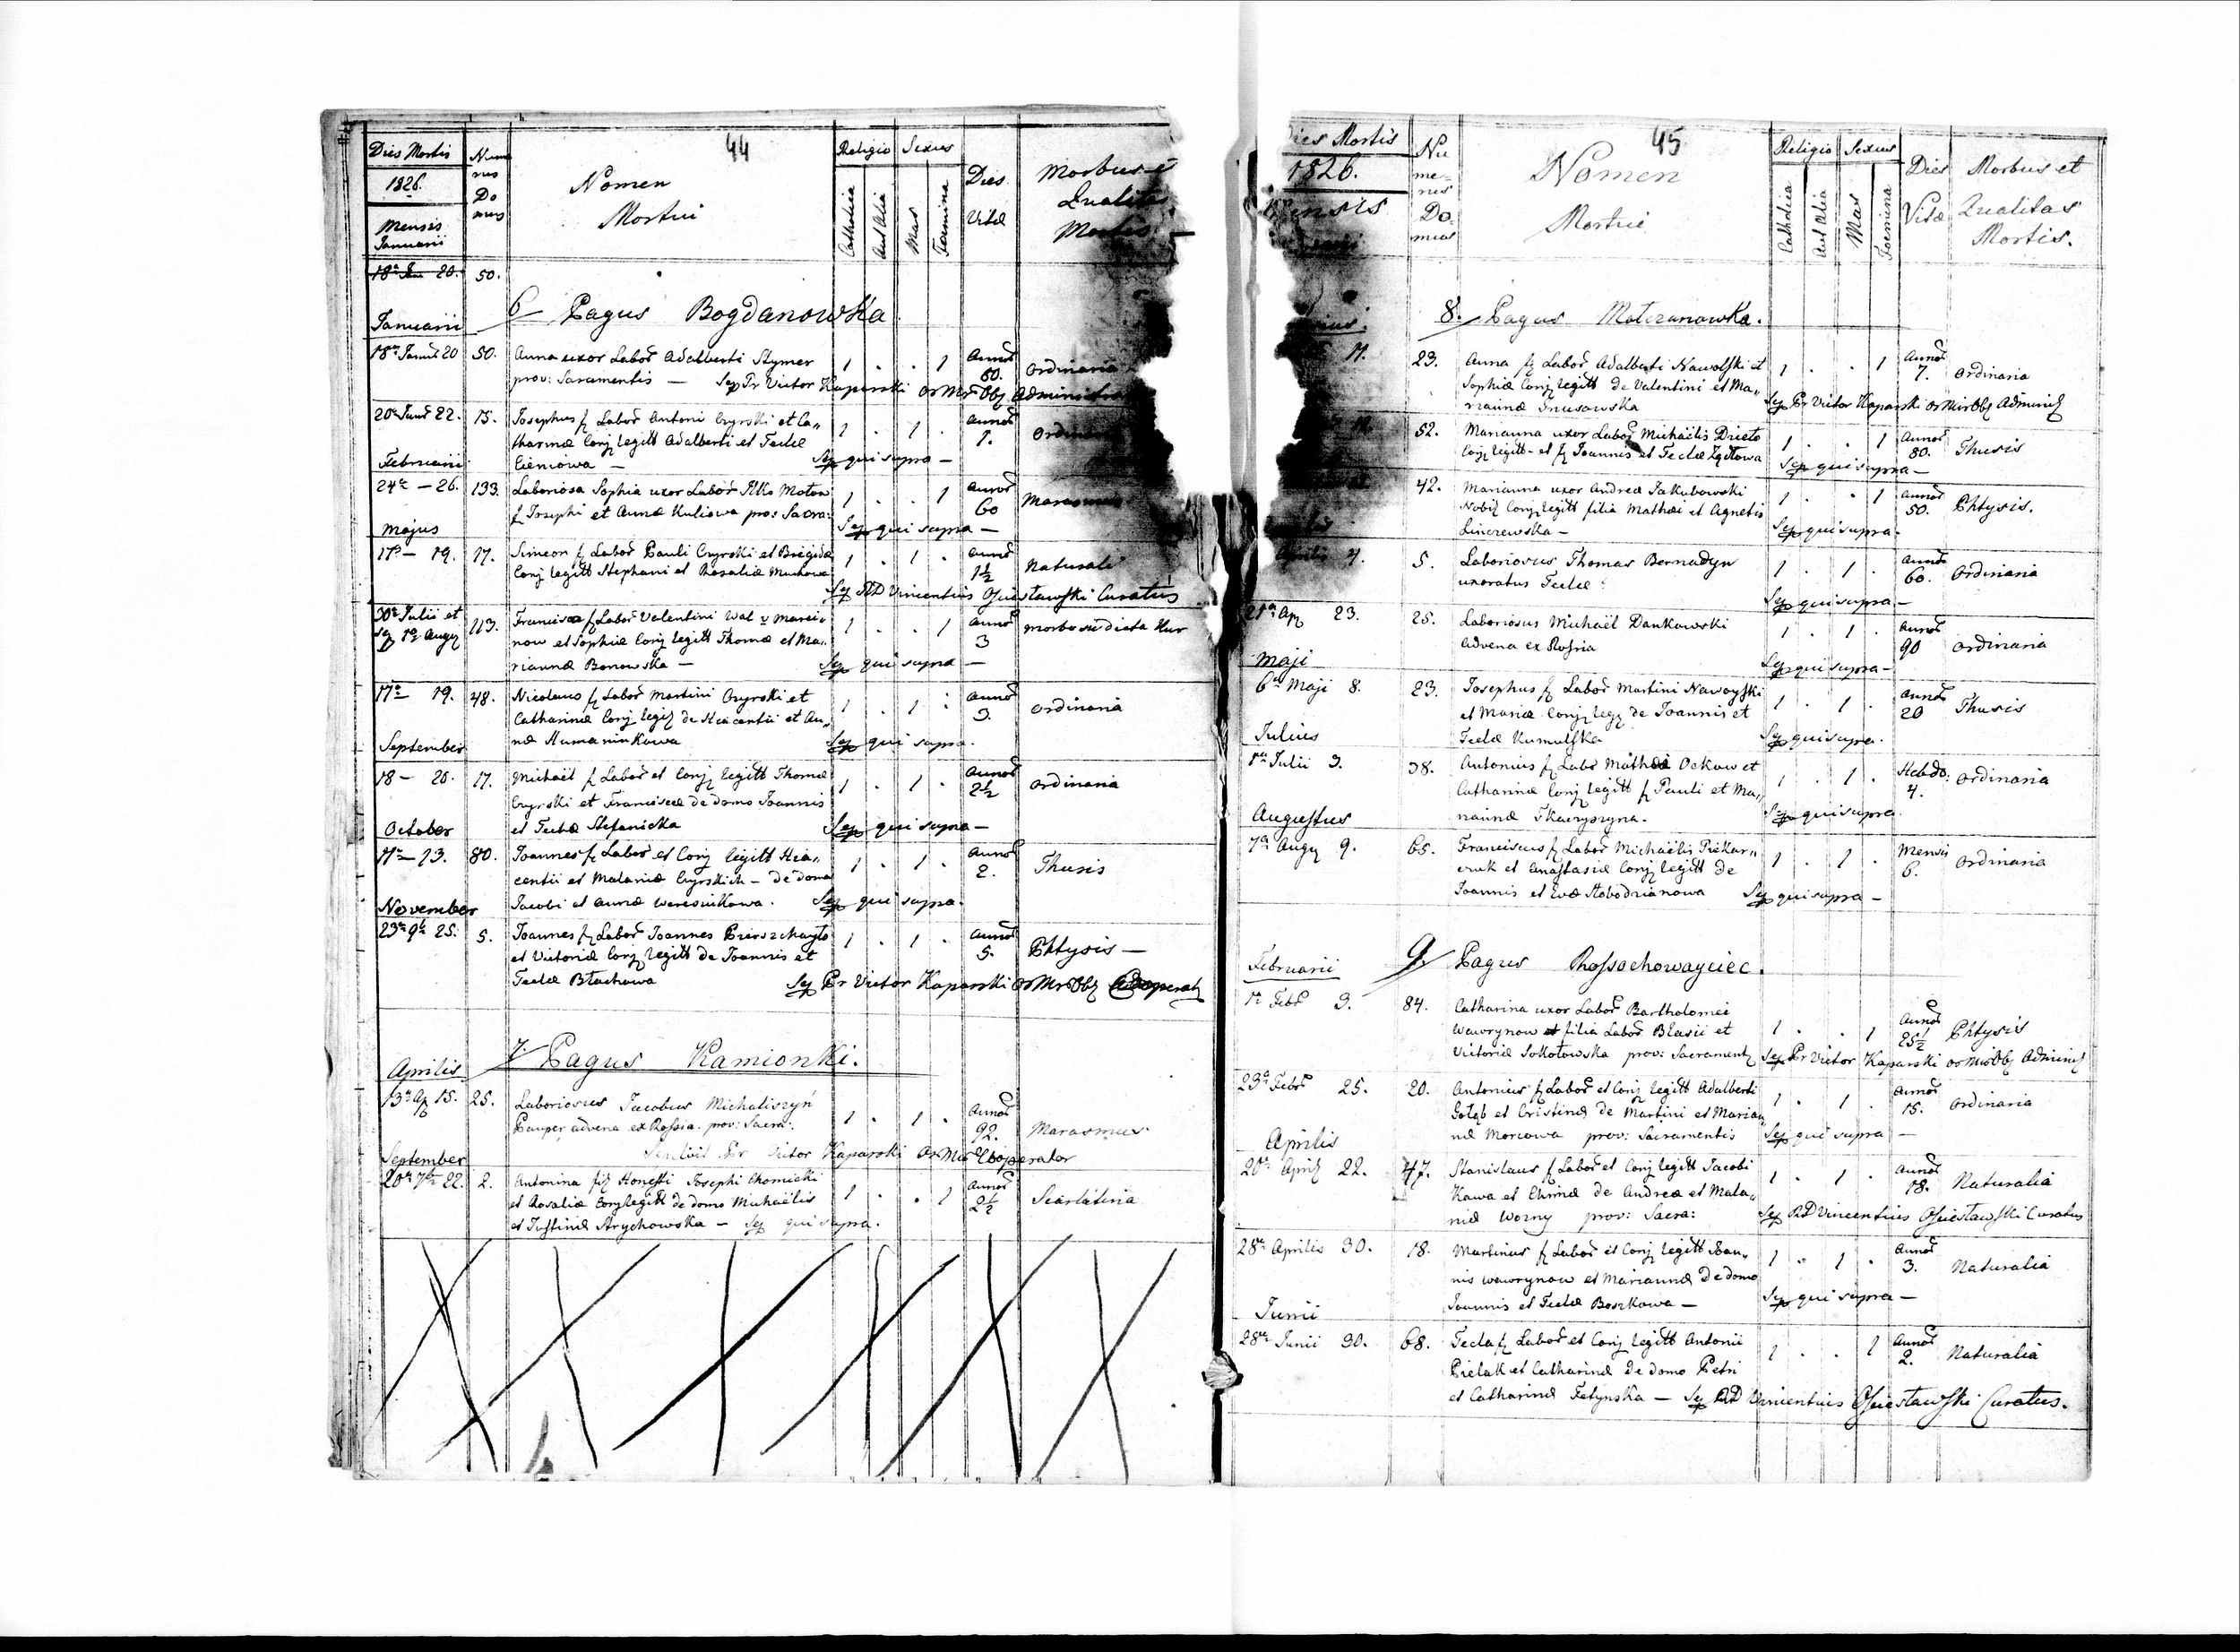 44
Dies Mortis
1826.
Mensis
Januarii
Nume
rus
Do
mus
Nomen
Mortui
Religio
Catholica
Aut Alia
Sexus
Mas
Foemina
Dies
Vitæ
Morbus et
Qualitas
Mortis
20. 50.
Januarii
6 Pagus Bogdanowka
18a Januar 20 50. Anna uxor Labor Adalberti Stymer 1 . . 1 Annor 60. Ordinaria
prov: Sacramentis — Sep Pr Victor Kaparski Or Mr Obs Administra
20a Januar 22. 15. Josephus f Labor Antoni Czyrski et Ca„ 1 . 1 . Annor 1.
tharinæ Conj legitt Adalberti et Teclæ
Februarii Cieniowa — Sep qui supra —
24a — 26. 133. Laboriosa Sophia uxor Labor Ilko Motow 1 . . 1 Annor 60 Marasmus
f Josephi et Annæ Kuliowa pro: Sacra:
Majus Sep qui supra —
17a — 19. 17. Simeon f Labor Pauli Czyrski et Brigidæ 1 . 1 . Annor 1½ Naturali
Conj legitt Stephani et Rosaliæ Muchowa
Sep RD Vincentius Osiestawski Curatus
30a Julii et
Sep 1a Aug 113. Francisca f Labor Valentini Wal v Marci„ 1 . . 1 Annor 3 morbo sic dicta Kur
now et Sophiæ Conj legitt Thomæ et Ma„
riannæ Bonowska — Sep qui supra —
17a — 19. 48. Nicolaus f Labor Martini Czyrski et 1 . 1 . Annor 3. Ordinaria
Catharinæ Conj legit de Hiacentii et An„
September næ Humaninkowa Sep qui supra.
18 — 20. 17. Michaël f Labor et Conj legitt Thomæ 1 . 1 . Annor 2½ Ordinaria
Czyrski et Franciscæ de domo Joannis
October et Teclæ Stefanicka Sep qui supra —
11a — 13. 80. Joannes f Labor et Conj legitt Hia„ 1 . 1 . Annor 2. Thusis
centii et Malaniæ Czyrskich — de domo
November Jacobi et Annæ Weresnikowa. Sep qui supra.
23a 9b 25. 5. Joannes f Labor Joannes 1 . 1 . Annor 5. Phtysis —
et Victoriæ Conj legitt de Joannis et
Teclæ Błachowa Sep Pr Victor Kaparski Or Mr Obs Cooperat
7. Pagus Kamionki.
Aprilis
13a Ap 15. 25. Laboriosus Jacobus Michaliszyń 1 . 1 . Annor 92. Marasmus
Pauper advena ex Rossia. prov: Sacra:
September Sepelivit Pr Victor Kaparski Or Mr Cooperator
20a 7br 22. 2. Antonina fil Honesti Josephi Chomicki 1 . . 1 Annor 2½ Scarlatina
et Rosaliæ Conj legitt de domo Michaëlis
et Justinæ Strychowska — Sep qui supra.
45
Dies Mortis
1826.
Mensis
Nu
me-
rus
Do-
mus
Nomen
Mortui
Religio
Catholica
Aut Alia
Sexus
Mas
Foemina
Dies
Vitæ
Morbus et
Qualitas
Mortis.
8. Pagus Molczanowka.
23. Anna f Labor Adalberti Nawolski et 1 . . 1 Annor 7. Ordinaria
Sophiæ Conj legitt de Valentini et Ma„
riannæ Sep Pr Victor Kaparski Or Mir Obs Administ
52. Marianna uxor Labor Michaëlis 1 . . 1 Annor 80. Thusis
Conj legitt - et f Joannis et Teclæ
Sep qui supra —
42. Marianna uxor Andreæ Jakubowski 1 . . 1 Annor 50. Phtysis.
Nobil Conj legitt filia Mathæi et Agnetis
Linczewska — Sep qui supra.
Aprilis 4. 5. Laboriosus Thomas Bernadyn 1 . 1 . Annor 60. Ordinaria
uxoratus Teclæ Sep qui supra —
21a Ap 23. 25. Laboriosus Michaël Dankowski 1 . 1 . Annor 90 Ordinaria
advena ex Rossia
Maji Sep qui supra —
6a Maji 8. 23. Josephus f Labor Martini Nawoyski 1 . 1 . Annor 20 Thusis
et Mariæ Conj leg de Joannis et
Julius Teclæ Kumulska Sep qui supra.
1a Julii 3. 38. Antonius f Labo Mathæi Ockow et 1 . 1 . Hebdo: 4. Ordinaria
Catharinæ Conj legitt f Pauli et Ma„
Augustus riannæ Tkaczyszyna. Sep qui supra
7a Aug 9. 65. Franciscus f Labor Michaëlis Piekar„ 1 . 1 . Mensis 6. Ordinaria
czuk et Anastasiæ Conj legitt de
Joannis et Evæ Slobodrianowa Sep qui supra —
Februarii
9. Pagus Rossochowayciec.
1a Febr 3. 84. Catharina uxor Labor Bartholomei 1 . . 1 Annor 25½ Phtysis
Wawrynow et filia Labor Blasii et
Victoriæ Sokołowska prov: Sacrament Sep Pr Victor Kaparski Or Mir Obs Administ
23a Febr 25. 20. Antonius f Labor et Conj legitt Adalberti 1 . 1 . Annor 15. Ordinaria
Gołąb et Cristinæ de Martini et Marian„
Aprilis næ Morcowa prov: Sacramentis Sep qui supra —
20a April 22. 47. Stanislaus f Labor et Conj legitt Jacobi 1 . 1 . Annor 18. Naturalia
Kawa et Chimæ de Andreæ et Mala„
niæ Worny prov: Sacra: Sep RD Vincentius Osiestawski Curatus
28a Aprilis 30. 18. Martinus f Labor et Conj legitt Joan„ 1 . 1 . Annor 3. Naturalia
nis Wawrynow et Mariannæ de domo
Junii Joannis et Teclæ Boszkowa — Sep qui supra —
28a Junii 30. 68. Tecla f Labor et Conj legitt Antonii 1 . . 1 Annor 2. Naturalia
Pielak et Catharinæ de domo Petri
et Catharinæ Fetynska — Sep RD Vincentius Osiestawski Curatus.